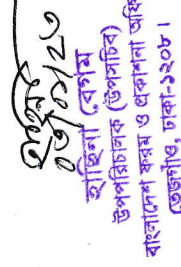 ০৬/০১/২৩
হাছিনা বেগম
উপপরিচালক (উপসচিব)
বাংলাদেশ ফরম ও প্রকাশনা অফি
তেজগাঁও, ঢাকা-১২০৮।